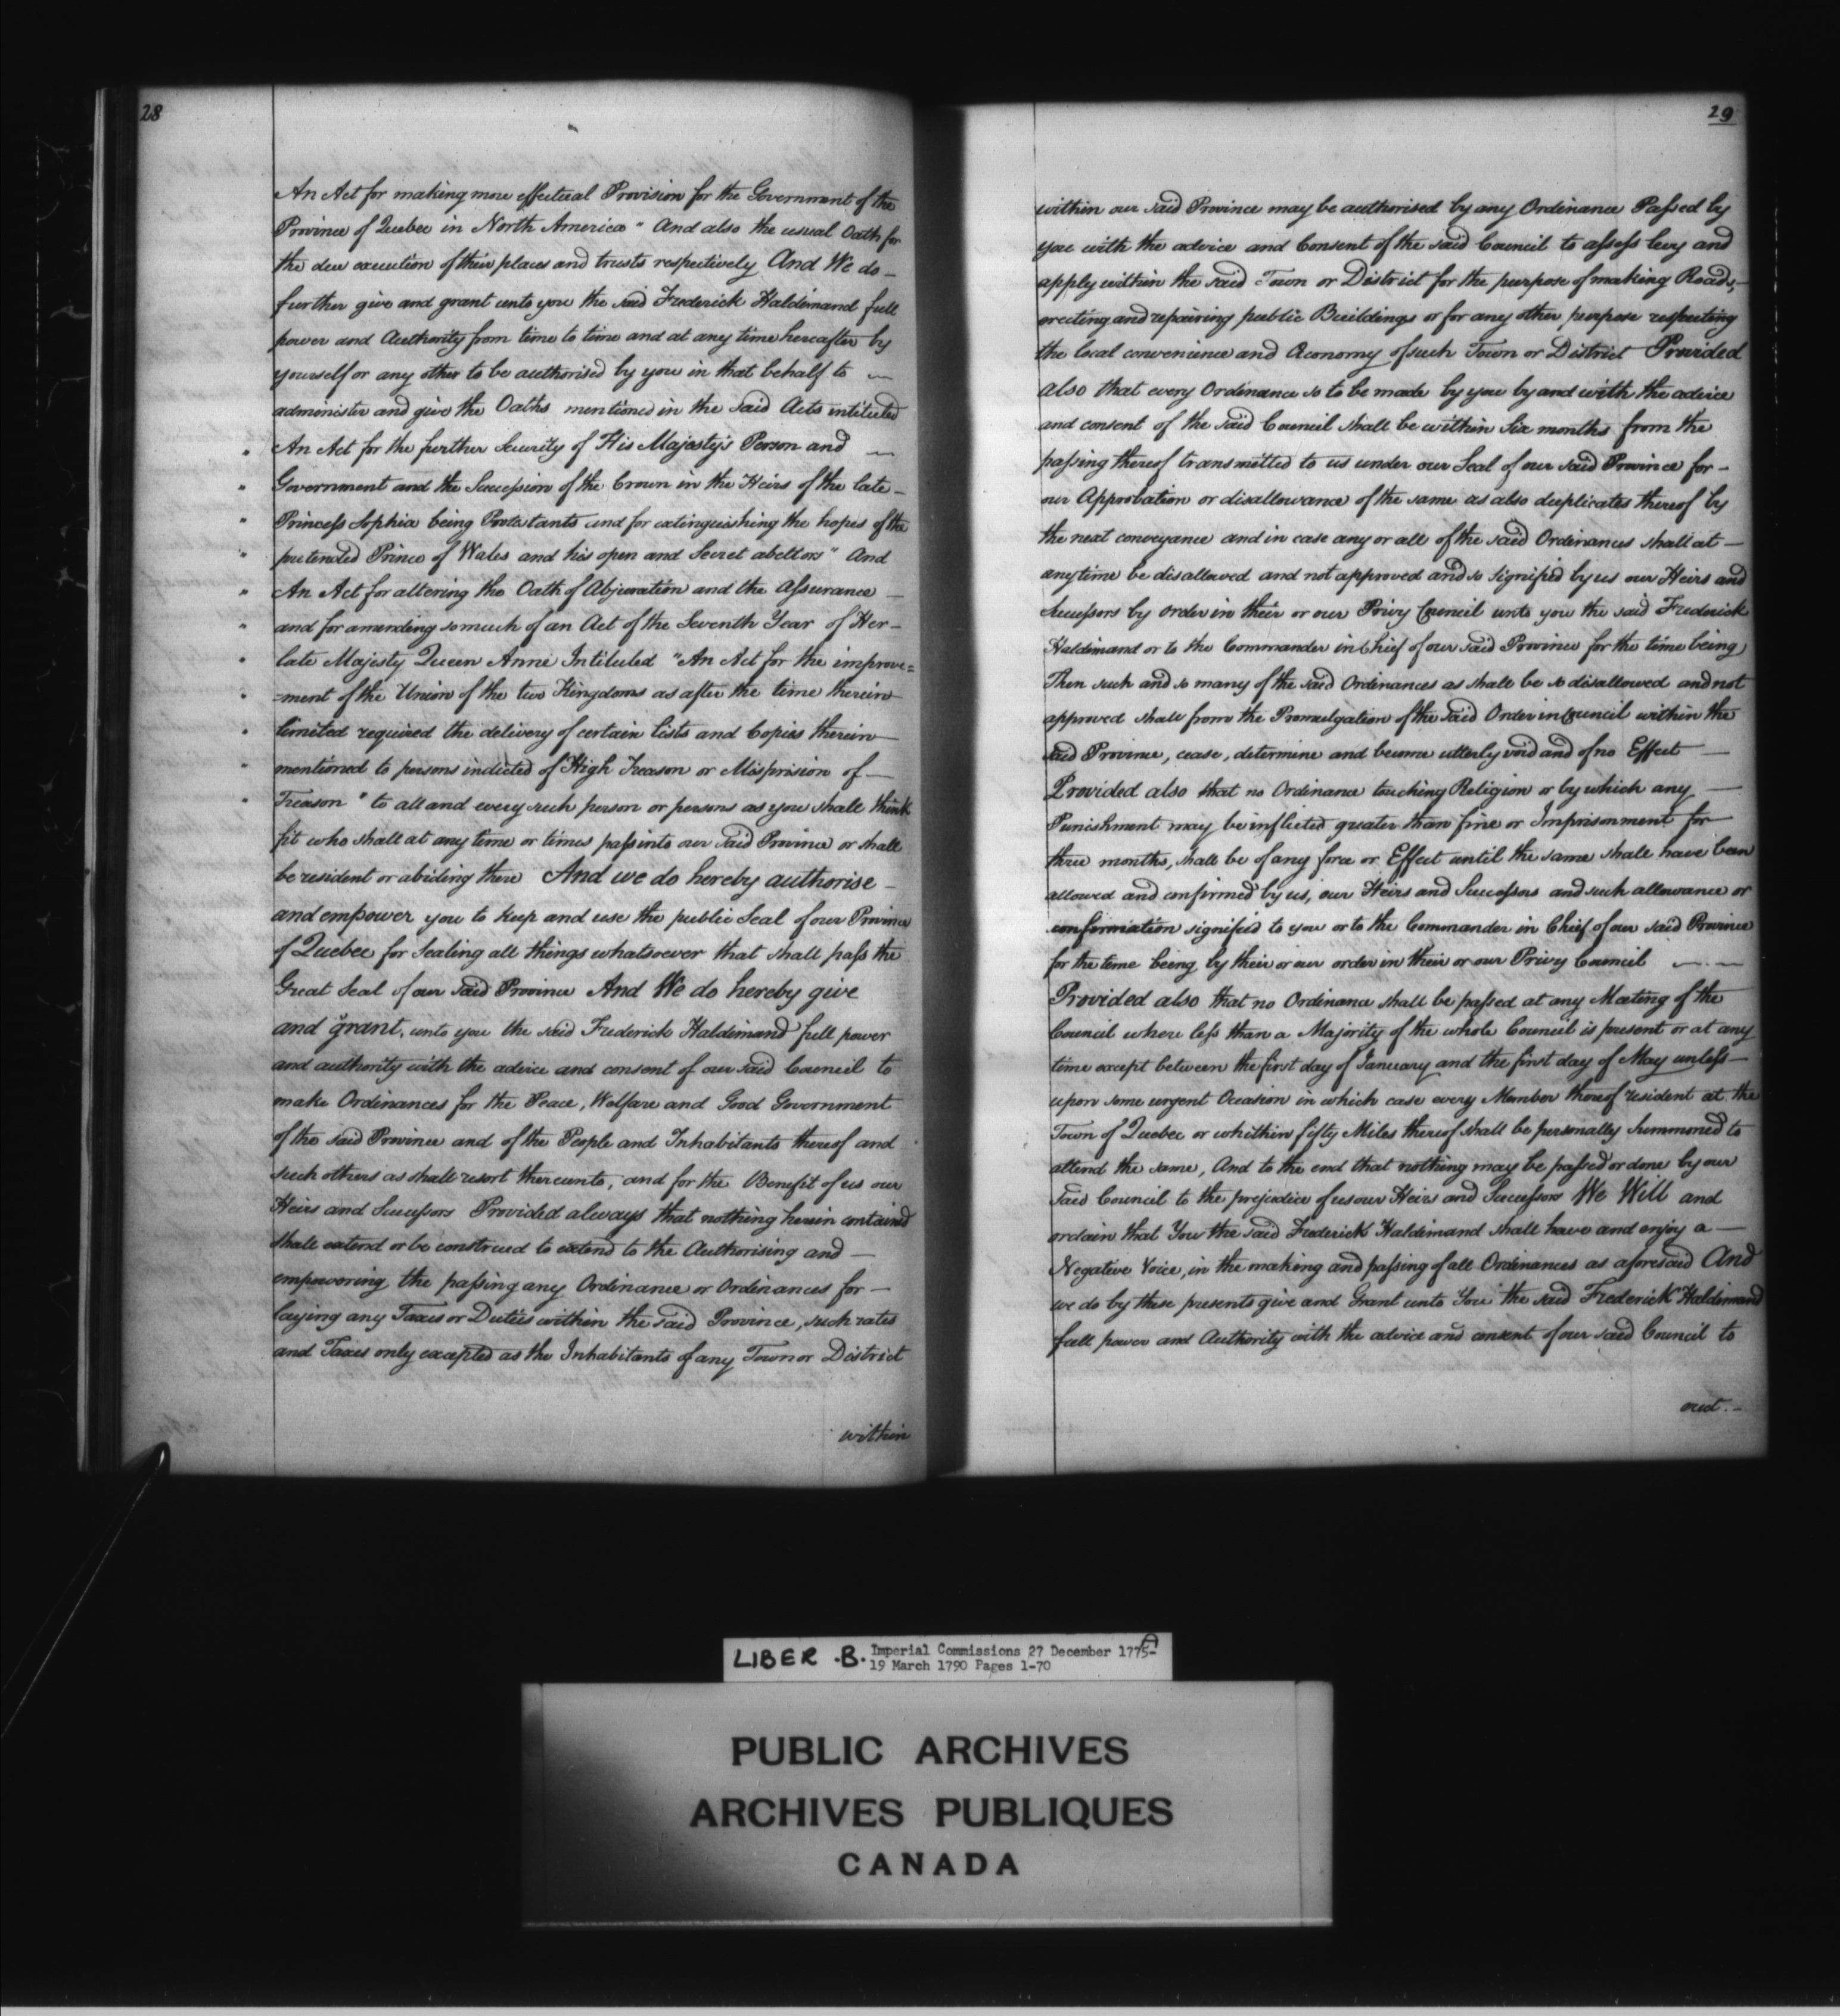 28
An Act for making more effectual Provision for the Government of the
Province of Quebec in North America" And also the usual Oath for
the due execution of their places and trusts respectively And We do –
further give and grant unto you the said Frederick Haldimand full
power and Authority from time to time and at any time hereafter by
yourself or any other to be authorised by you in that behalf to —
administer and give the Oaths mentioned in the said Acts intituled
" An Act for the further Security of His Majesty's Person and —
" Government and the Succession of the Crown in the Heirs of the late –
" Princess Sophia being Protestants and for extinguishing the hopes of the
" pretended Prince of Wales and his open and Secret abettors" And
" An Act for altering the Oath of Abjuration and the Assurance —
" and for amending so much of an Act of the Seventh Year of Her –
" late Majesty Queen Anne Intituled "An Act for the improve=
" =ment of the Union of the two Kingdoms as after the time therein
" limited required the delivery of certain lists and Copies therein —
" mentioned to persons indicted of High Treason or Misprision of —
" Treason" to all and every such person or persons as you shall think
fit who shall at any time or times pass into our said Province or shall
be resident or abiding there And we do hereby authorise –
and empower you to keep and use the public Seal of our Province
of Quebec for Sealing all things whatsoever that shall pass the
Great Seal of our said Province And We do hereby give
and grant, unto you the said Frederick Haldimand full power
and authority with the advice and consent of our said Council to
make Ordinances for the Peace, Welfare and Good Government
of the said Province and of the People and Inhabitants thereof and
such others as shall resort thereunto, and for the Benefit of us our
Heirs and Successors Provided always that nothing herein contained
shall extend or be construed to extend to the Authorising and —
empowering the passing any Ordinance or Ordinances for —
laying any Taxes or Duties within the said Province, such rates
and Taxes only excepted as the Inhabitants of any Town or District
within
29
within our said Province may be authorised by any Ordinance Passed by
you with the advice and Consent of the said Council to assess levy and
apply within the said Town or District for the purpose of making Roads, –
erecting and repairing public Buildings or for any other purpose respecting
the local convenience and Œconomy of such Town or District Provided
also that every Ordinance so to be made by you by and with the advice
and consent of the said Council shall be within Six months from the
passing thereof transmitted to us under our Seal of our said Province for –
our Approbation or disallowance of the same as also duplicates thereof by
the next conveyance and in case any or all of the said Ordinances shall at —
any time be disallowed and not approved and so signified by us our Heirs and
Successors by order in their or our Privy Council unto you the said Frederick
Haldimand or to the Commander in Chief of our said Province for the time being
Then such and so many of the said Ordinances as shall be so disallowed and not
approved shall from the Promulgation of the said Order in Council within the
said Province, cease, determine and become utterly void and of no Effect —
Provided also that no Ordinance touching Religion or by which any —
Punishment may be inflicted greater than fine or Imprisonment for
three months, shall be of any force or Effect until the same shall have been
allowed and confirmed by us, our Heirs and Successors and such allowance or
confirmation signified to you or to the Commander in Chief of our said Province
for the time being by their or our order in their or our Privy Council —
Provided also that no Ordinance shall be passed at any Meeting of the
Council where less than a Majority of the whole Council is present or at any
time except between the first day of January and the first day of May unless —
upon some urgent Occasion in which case every Member thereof resident at the
Town of Quebec or whithin fifty Miles thereof shall be personally Summoned to
attend the same, And to the end that nothing may be passed or done by our
said Council to the prejudice of us our Heirs and Successors We Will and
ordain that You the said Frederick Haldimand shall have and enjoy a —
Negative Voice, in the making and passing of all Ordinances as aforesaid And
we do by these presents give and Grant unto You the said Frederick Haldimand
full power and Authority with the advice and consent of our said Council to
LIBER .B. Imperial Commissions 27 December 1775-
19 March 1790 Pages 1-70
A
PUBLIC ARCHIVES
ARCHIVES PUBLIQUES
CANADA